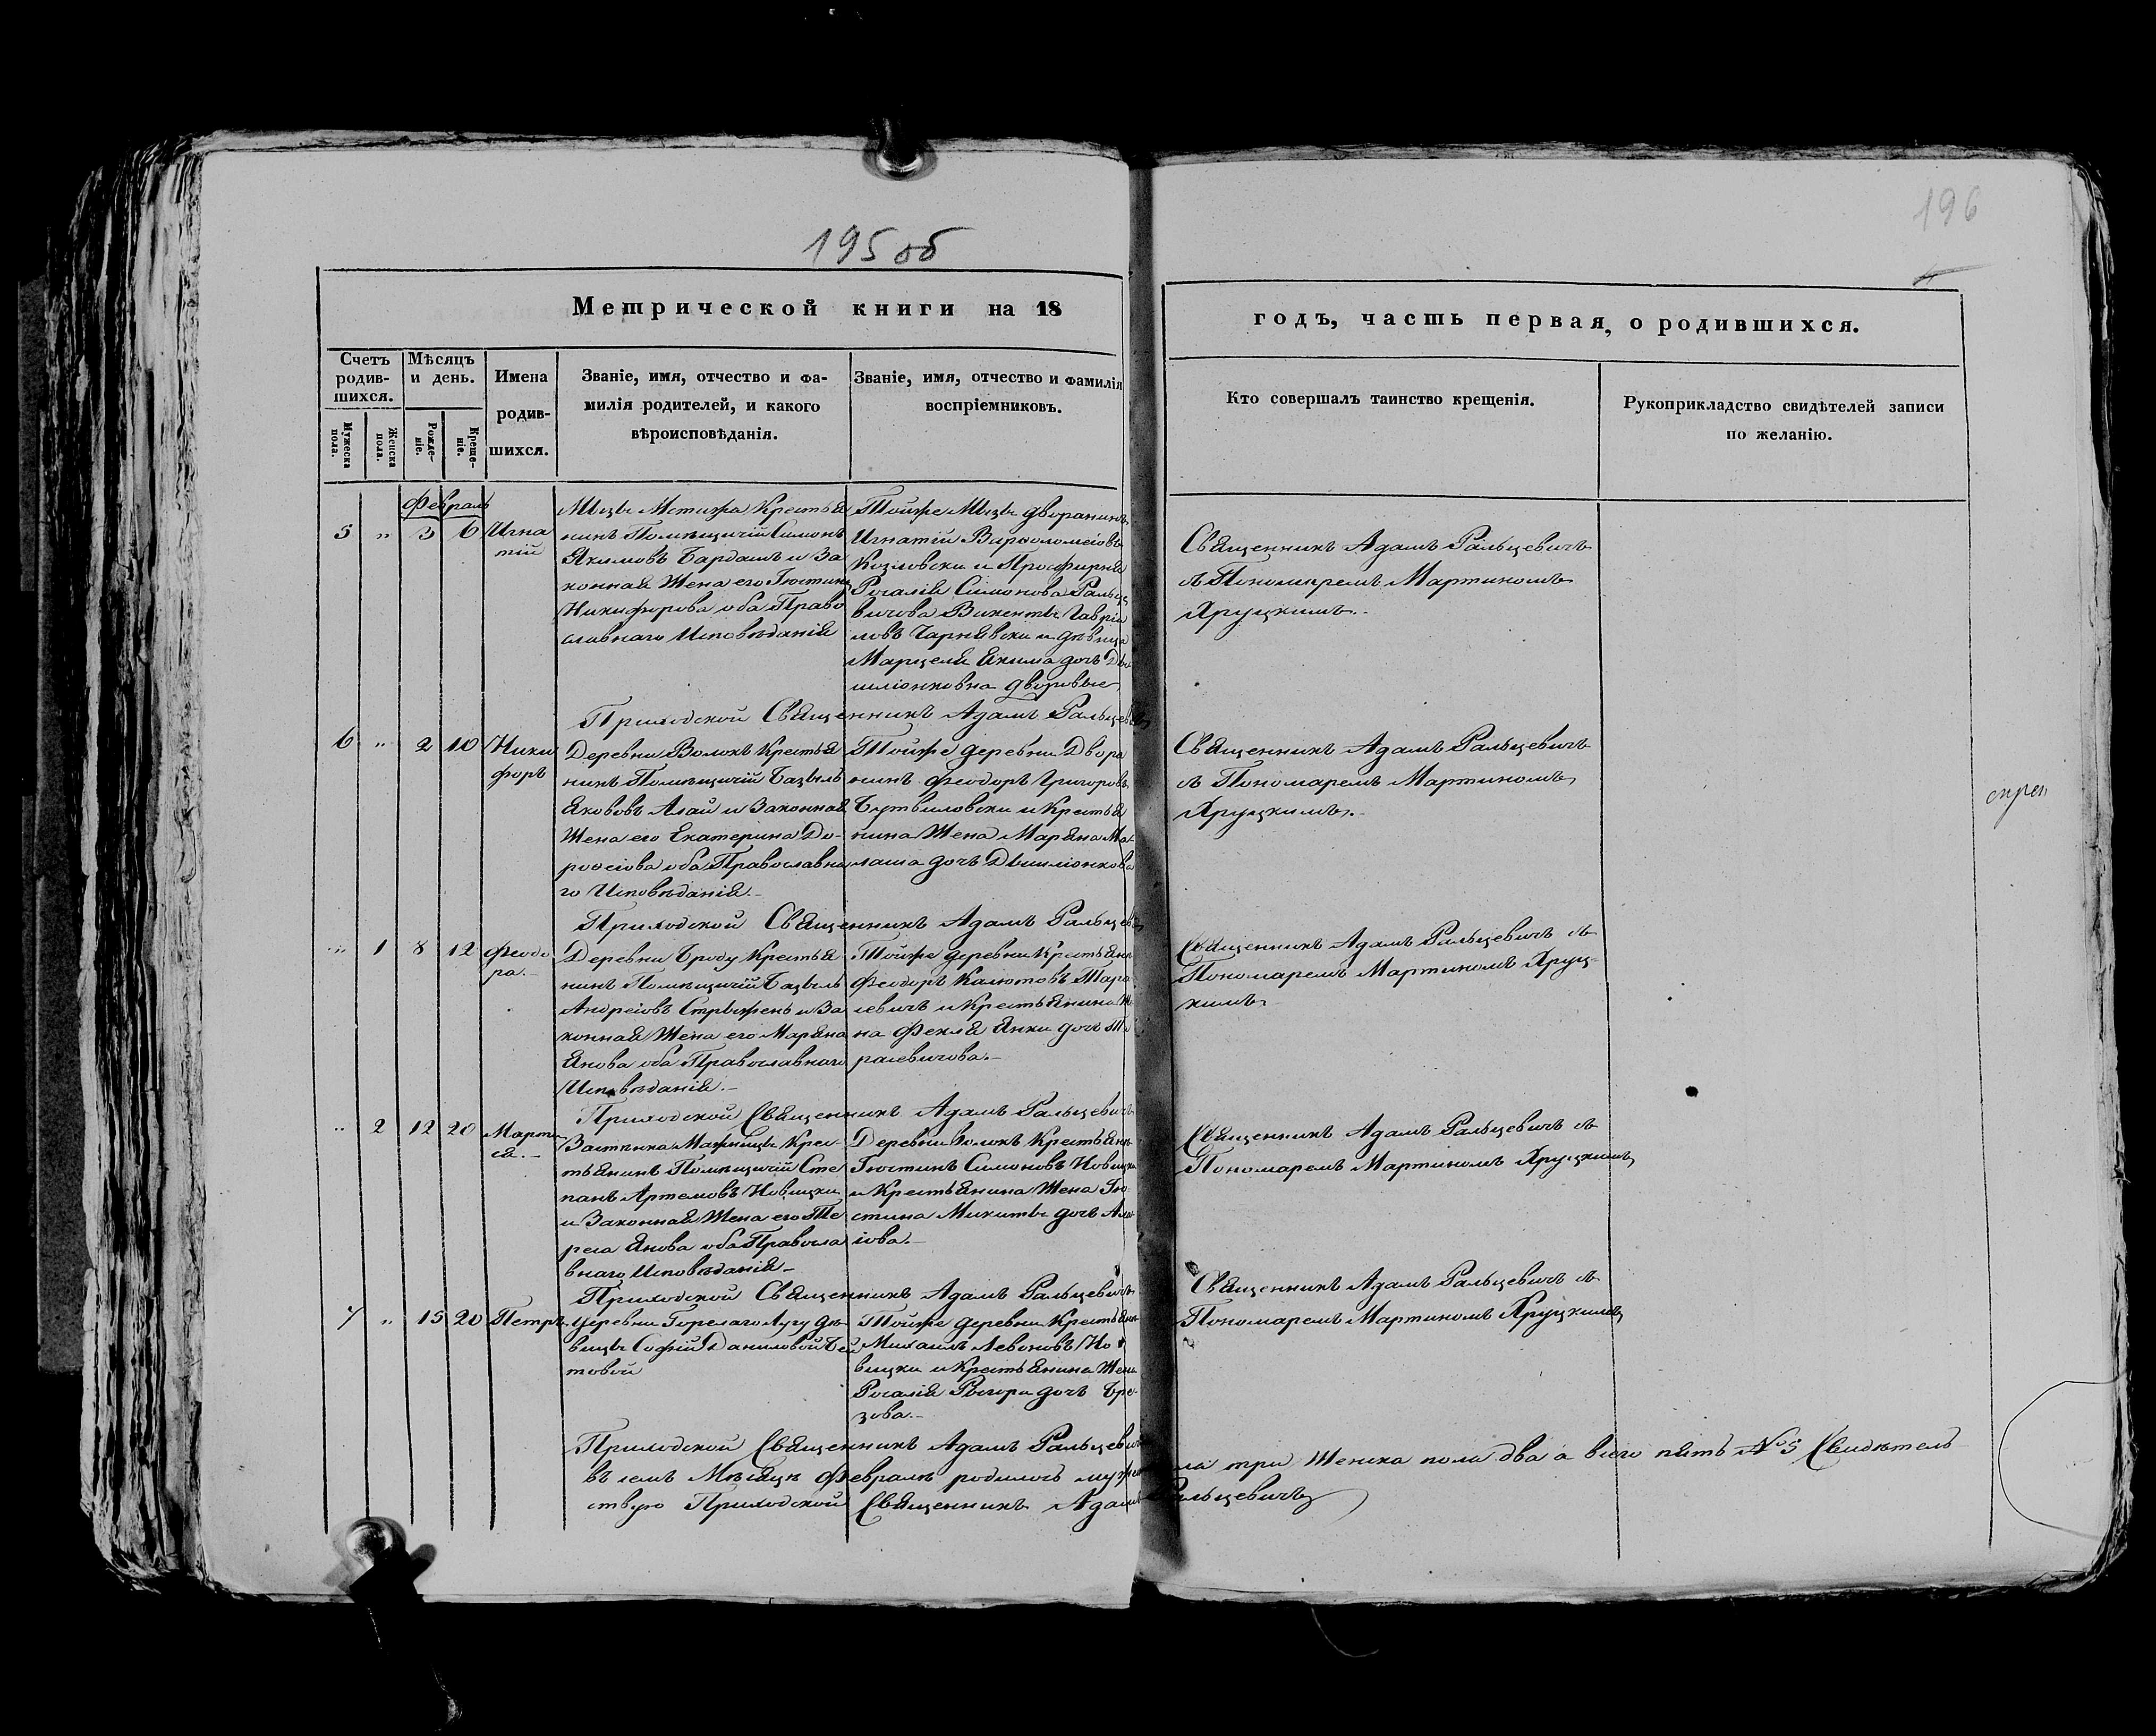 195 об
196
Метрической книги на 18
годъ, часть первая, о родившихся.
Счетъ родив-шихся.
Мѣсяцъ и день.
Имена родив-шихся.
Званіе, имя, отчество и фа-
милія родителей, и какого
вѣроисповѣданія.
Званіе, имя, отчество и фамилія
воспріемниковъ.
Кто совершалъ таинство крещенія.
Рукоприкладство свидѣтелей записи
по желанію.
Мужеска пола.
Женска пола.
Рожде-ніе.
Креще-ніе.
Февраль
5 " 3 6 Игна
тій
Мызы Мстижа Крестья
нинъ Помѣщичій Симонъ
Якимовъ Бардашъ и За
конная Жена его Іюстина
Никифорова оба Право
славнаго Исповѣданія
Тойже Мызы дворанинъ
Игнатій Варфоломеіовъ
Козловски и Просфирня
Рогалія Симонова Ральце
вичова Викенты Гаврiи
ловъ Чарнявски и дѣвица
Марцеля Якима дочь
дворовые
Священникъ Адамъ Ральцевичъ
съ Пономаремъ Мартиномъ
Хруцкимъ.
Приходской Священникъ Адамъ Ральцевичъ
6 " 2 10 Ники
форъ
Деревни Волокъ Крестья
нинъ Помѣщичій Базыль
Яковъ Алай и Законная
Жена его Екатерина До-
рофеіова оба Православна
го Исповѣданія.
Тойже деревни Двора
нинъ Феодоръ Григоровъ
Бутвиловски и Крестья
нина Жена Маряна Ма-
лаша дочь
Священникъ Адамъ Ральцевичъ
съ Пономаремъ Мартиномъ
Хруцкимъ.
Приходской Священникъ Адамъ Ральцевичъ
" 1 8 12 Феодо
ра.
Деревни Броду Крестья
нинъ Помѣщичій Базыль
Андреіовъ Стрыжень и За
конная Жена его Маряна
Янова оба Православнаго
Исповѣданія.
Тойже деревни Крестьянинъ
Феодоръ Калютовъ Тара
севичъ и Крестьянина Же
на Фекля Янки дочь Та
расевичова.
Священникъ Адамъ Ральцевичъ съ
Пономаремъ Мартиномъ Хруц-
кимъ
Приходской Священникъ Адамъ Ральцевичъ
" 2 12 20
Застѣнка Крес-
тьянинъ Помѣщичій Сте
панъ Артемовъ Новицки
и Законная Жена его Те
реса Янова оба Правосла
внаго Исповѣданія
Деревни Волокъ Крестьянинъ
Іюстинъ Симоновъ Новицки
и Крестьянина Жена Ію
стина Микиты дочь
Священникъ Адамъ Ральцевичъ съ
Пономаремъ Мартиномъ Хруцкимъ
Приходской Священникъ Адамъ Ральцевичъ
7 " 15 20 Петръ.
Деревни Горелаго Лугу дѣ-
вицы Софіи Даниловой
Тойже деревни Крестьянинъ
Михаилъ Левоновъ Но
вицки и Крестьянина Жена
Рогалія Рыгора дочь Бре-
зова.
Священникъ Адамъ Ральцевичъ съ
Пономаремъ Мартиномъ Хруцкимъ
Приходской Священникъ Адамъ Ральцевичъ
въ семъ Мѣсяцѣ Февралѣ родилось муже пола три Женска пола два а всего пять № 5 Свидѣтель
ствую Приходской Священникъ Адамъ Ральцевичъ